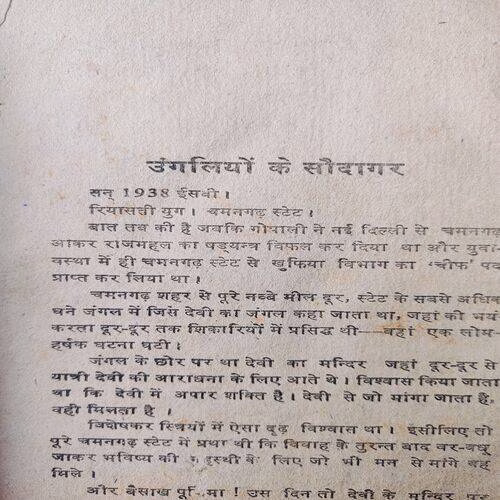 उंगलियों के सौदागर
सन् 1938 ईसवी।
रियासती युग। चमनगढ़ स्टेट।
बात तब की है जबकि गोपाली ने नई दिल्ली से चमनगढ़
आकर राजमहल का षड़यन्त्र विफल कर दिया था और युवा-
वस्था में ही चमनगढ़ स्टेट से खुफिया विभाग का 'चीफ' पद
प्राप्त कर लिया था।
चमनगढ़ शहर से पूरे नब्बे मील दूर, स्टेट के सबसे अधिक
घने जंगल में जिसे देवी का जंगल कहा जाता था, जहां की भयं
करता दूर-दूर तक शिकारियों में प्रसिद्ध थी—वहां एक लोम-
हर्षक घटना घटी।
जंगल के छोर पर था देवी का मन्दिर जहां दूर-दूर से
यात्री देवी की आराधना के लिए आते थे। विश्वास किया जाता
था कि देवी में अपार शक्ति है। देवी से जो मांगा जाता है,
वही मिलता है।
विशेषकर स्त्रियों में ऐसा दृढ़ विश्वास था। इसीलिए तो
पूरे चमनगढ़ स्टेट में प्रथा थी कि विवाह के तुरन्त बाद वर-वधू
जाकर भविष्य की के लिए जो भी मन से मांगे वह
मिले।
और बैसाख उस दिन तो देवी के मन्दिर पर